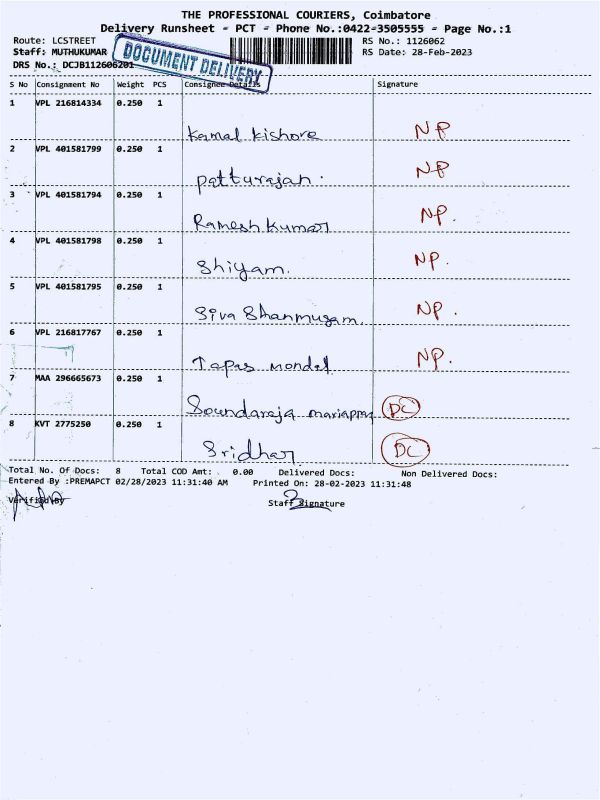 THE PROFESSIONAL COURIERS, Coimbatore
Delivery Runsheet - PCT - Phone No.:0422-3505555 - Page No.:1
Route: LCSTREET RS No.: 1126062
Staff: MUTHUKUMAR RS Date: 28-Feb-2023
DOCUMENT DELIVERY
DRS No.: DCJB112606201
S No Consignment No Weight PCS Consignee Details Signature
1 VPL 216814334 0.250 1
Kamal Kishore NP
2 VPL 401581799 0.250 1
Patturajan. NP
3 VPL 401581794 0.250 1
Ramesh Kumar NP.
4 VPL 401581798 0.250 1
Shiyam. NP.
5 VPL 401581795 0.250 1
Siva Shanmugam. NP.
6 VPL 216817767 0.250 1
Tapas mondal NP.
7 MAA 296665673 0.250 1
Soundaraja mariappa DC
8 KVT 2775250 0.250 1
Sridhar DC
Total No. Of Docs: 8 Total COD Amt: 0.00 Delivered Docs: Non Delivered Docs:
Entered By :PREMAPCT 02/28/2023 11:31:40 AM Printed On: 28-02-2023 11:31:48
Verified By Staff Signature